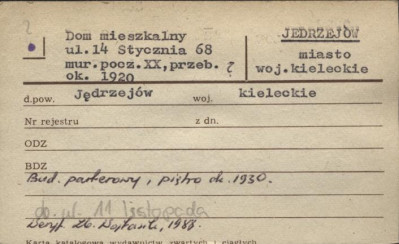 ?
Dom mieszkalny JĘDRZEJÓW
ul.14 Stycznia 68 miasto
mur.pocz.XX,przeb. ? woj.kieleckie
ok. 1920
d.pow. Jędrzejów woj. kieleckie
Nr rejestru z dn.
ODZ
BDZ
Bud. parterowy, piętro ok. 1930.
ob. ul. 11 listopada
Decyz. Zb. 1988.
Karta katalogowa wydawnictw zwartych i ciągłych